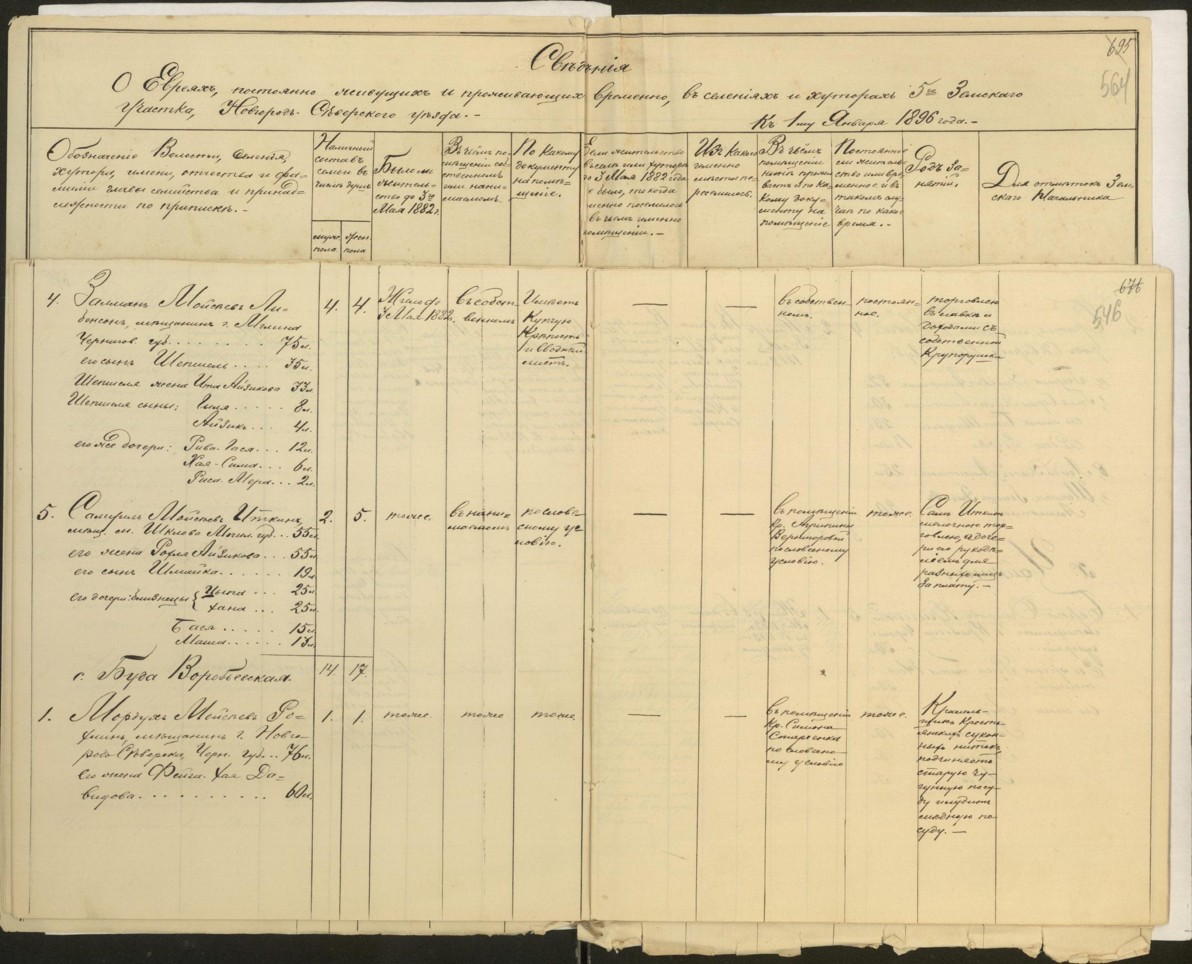 695
564
Свѣдѣнія
О Евреяхъ, постоянно живущихъ и проживающихъ временно, въ селеніяхъ и хуторахъ 5го Земскаго
Участка, Новгородъ-Сѣверскаго уѣзда.-
Къ 1му Января 1896 года.-
Обозначеніе Волости, селенія,
хутора, имени, отчества и фа-
миліи главы семейства и принад-
лежности по припискѣ.-
Наличный
составъ
семьи
число душъ
мужс.
пола
женс.
пола
Было ли
житель-
ство до 3го
Мая 1882 г.
Въ чьемъ по-
мѣщеніи соб-
ственномъ
или нани-
маемомъ
По какому
документу
на помѣ-
щеніе.
Если жительство
въ селѣ или хуторѣ
до 3 Мая 1882 года
не было, то когда
именно поселился
въ чьемъ именно
помѣщеніи.-
Изъ какого
именно
мѣста пе-
реселились.
Въ чьемъ
помѣщеніи
нынѣ прожи-
ваетъ и по ка-
кому доку-
менту на
помѣщеніе
Постоянное
ли житель-
ство или вре-
менное и въ
такомъ слу-
чаѣ по како
время.-
Родъ за-
нятій.
Для отмѣтокъ Зем-
скаго Начальника
676
546
4. Залманъ Мойсеевъ Ли-
бенсонъ, мѣщанинъ г. Мглина
Чернигов. губ. 75 л.
его сынъ Шепшель 35 л.
Шепшеля жена Ита Айзикова 33 л.
Шепшеля сыны: Гиля 8 л.
Айзикъ 4 л.
его же дочери: Рива-Гася 12 л.
Хая-Сима 6 л.
Рися-Мера 2 л.
4. 4.
Жилъ до
3 Мая 1882 г.
въ собст-
венномъ
Имѣетъ
Купчую
Крѣпость
и вводный
листъ.
— —
въ собствен-
номъ.
постоян-
ное.
торговлею
въ лавкѣ и
городами съ
собственной
Крупорушки
5. Самуилъ Мойсеевъ Иткинъ,
мѣщ. м. Шклова Могил. губ. 55 л.
его жена Рофля Айзикова 55 л.
его сынъ Шмайка 19 л.
его дочери: близнецы { Цыпа 25 л.
Хана 25 л.
Бася 15 л.
Маша 13 л.
2. 5.
тоже.
въ нани-
маемомъ
по слове-
сному ус-
ловію.
— —
въ помѣщеніи
кр. Агрипины
по словесному
условію.
тоже.
Самъ Иткинъ
мелочною тор-
говлею, а доче-
ри его рукодѣ-
ліемъ для
разныхъ лицъ
за плату.-
с. Буда Воробьевская
14. 17.
1. Мордухъ Мойсеевъ Ро-
хлинъ, мѣщанинъ г. Новго-
родъ-Сѣверска, Черн. губ. 76 л.
его жена Фейга-Хая Да-
видова 60 л.
1. 1.
тоже. тоже тоже.
— —
въ помѣщеніи
кр. Симона
Старченка
по словесно-
му условію
тоже.
Красиль-
щикъ кресть-
янскихъ сукон-
ныхъ нитокъ,
подчиняетъ
старую чу-
гунную посу-
ду и лудитъ
мѣдную по-
суду.-